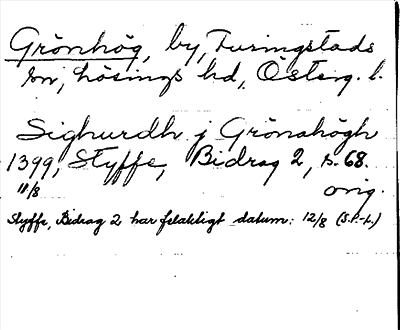 Grönhög, by, Furingstads
sn, Lösings hd, Österg. l.
Sighurdh j Grönahögh
1399, Styffe, Bidrag 2, s. 68.
11/8 orig.
Styffe, Bidrag 2 har felaktigt datum: 12/8 (S.P.-L.)